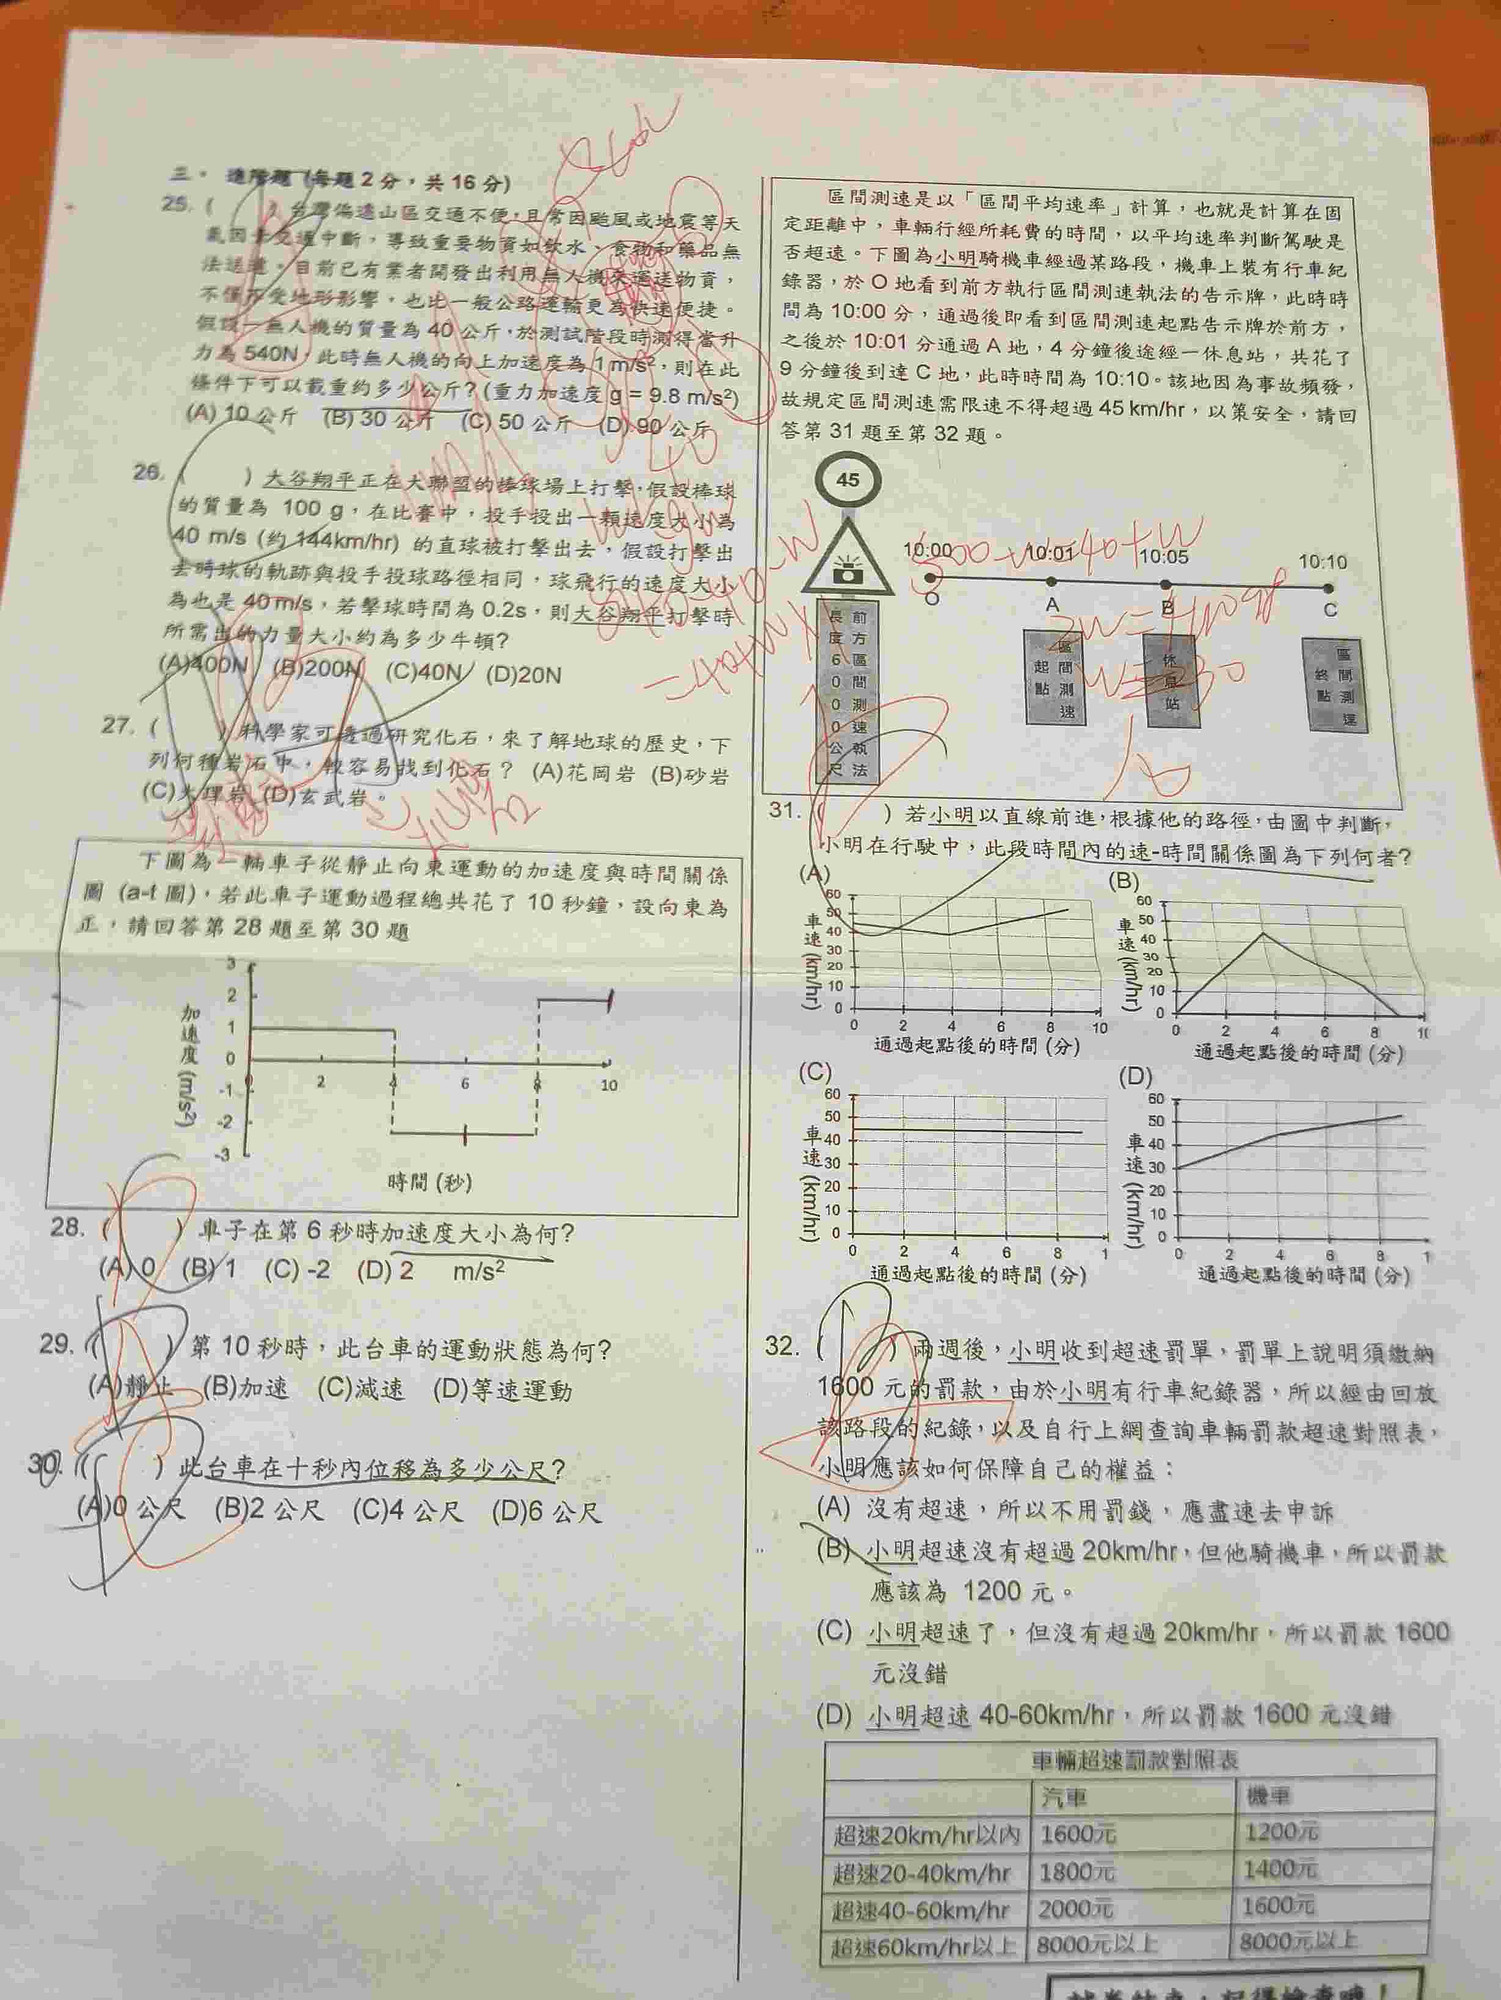 三、進階題 (每題2分，共16分)
25. ( ) 台灣偏遠山區交通不便，且常因颱風或地震等天
氣因素交通中斷，導致重要物資如飲水、食物和藥品無
法送達。目前已有業者開發出利用無人機來運送物資，
不僅不受地形影響，也比一般公路運輸更為快速便捷。
假設一無人機的質量為 40 公斤，於測試階段時測得當升
力為 540N，此時無人機的向上加速度為 1 m/s²，則在此
條件下可以載重約多少公斤？(重力加速度 g = 9.8 m/s²)
(A) 10 公斤 (B) 30 公斤 (C) 50 公斤 (D) 90 公斤
26. ( ) 大谷翔平正在大聯盟的棒球場上打擊，假設棒球
的質量為 100 g，在比賽中，投手投出一顆速度大小為
40 m/s (約 144km/hr) 的直球被打擊出去，假設打擊出
去時球的軌跡與投手投球路徑相同，球飛行的速度大小
為也是 40 m/s，若擊球時間為 0.2s，則大谷翔平打擊時
所需出的力量大小約為多少牛頓？
(A)400N (B)200N (C)40N (D)20N
27. ( ) 科學家可透過研究化石，來了解地球的歷史，下
列何種岩石中，較容易找到化石？ (A)花岡岩 (B)砂岩
(C)大理岩 (D)玄武岩。
下圖為一輛車子從靜止向東運動的加速度與時間關係
圖 (a-t 圖)，若此車子運動過程總共花了 10 秒鐘，設向東為
正，請回答第 28 題至第 30 題
加速度 (m/s²)
3
2
1
0
-1
-2
-3
2 4 6 8 10
時間 (秒)
28. ( ) 車子在第 6 秒時加速度大小為何?
(A) 0 (B) 1 (C) -2 (D) 2 m/s²
29. ( ) 第 10 秒時，此台車的運動狀態為何?
(A)靜止 (B)加速 (C)減速 (D)等速運動
30. ( ) 此台車在十秒內位移為多少公尺?
(A)0 公尺 (B)2 公尺 (C)4 公尺 (D)6 公尺
區間測速是以「區間平均速率」計算，也就是計算在固
定距離中，車輛行經所耗費的時間，以平均速率判斷駕駛是
否超速。下圖為小明騎機車經過某路段，機車上裝有行車紀
錄器，於 O 地看到前方執行區間測速執法的告示牌，此時時
間為 10:00 分，通過後即看到區間測速起點告示牌於前方，
之後於 10:01 分通過 A 地，4 分鐘後途經一休息站，共花了
9 分鐘後到達 C 地，此時時間為 10:10。該地因為事故頻發，
故規定區間測速需限速不得超過 45 km/hr，以策安全，請回
答第 31 題至第 32 題。
45
前方區間測速執法
長度6000公尺
10:00 10:01 10:05 10:10
O A B C
區間測速起點
休息站
區間測速終點
31. ( ) 若小明以直線前進，根據他的路徑，由圖中判斷，
小明在行駛中，此段時間內的速-時間關係圖為下列何者?
(A)
車速(km/hr)
60
50
40
30
20
10
0
0 2 4 6 8 10
通過起點後的時間 (分)
(B)
車速(km/hr)
60
50
40
30
20
10
0
0 2 4 6 8 10
通過起點後的時間 (分)
(C)
車速(km/hr)
60
50
40
30
20
10
0
0 2 4 6 8 1
通過起點後的時間 (分)
(D)
車速(km/hr)
60
50
40
30
20
10
0
0 2 4 6 8 1
通過起點後的時間 (分)
32. ( ) 兩週後，小明收到超速罰單，罰單上說明須繳納
1600 元的罰款，由於小明有行車紀錄器，所以經由回放
該路段的紀錄，以及自行上網查詢車輛罰款超速對照表，
小明應該如何保障自己的權益：
(A) 沒有超速，所以不用罰錢，應盡速去申訴
(B) 小明超速沒有超過 20km/hr，但他騎機車，所以罰款
應該為 1200 元。
(C) 小明超速了，但沒有超過 20km/hr，所以罰款 1600
元沒錯
(D) 小明超速 40-60km/hr，所以罰款 1600 元沒錯
車輛超速罰款對照表
汽車 機車
超速20km/hr以內 1600元 1200元
超速20-40km/hr 1800元 1400元
超速40-60km/hr 2000元 1600元
超速60km/hr以上 8000元以上 8000元以上